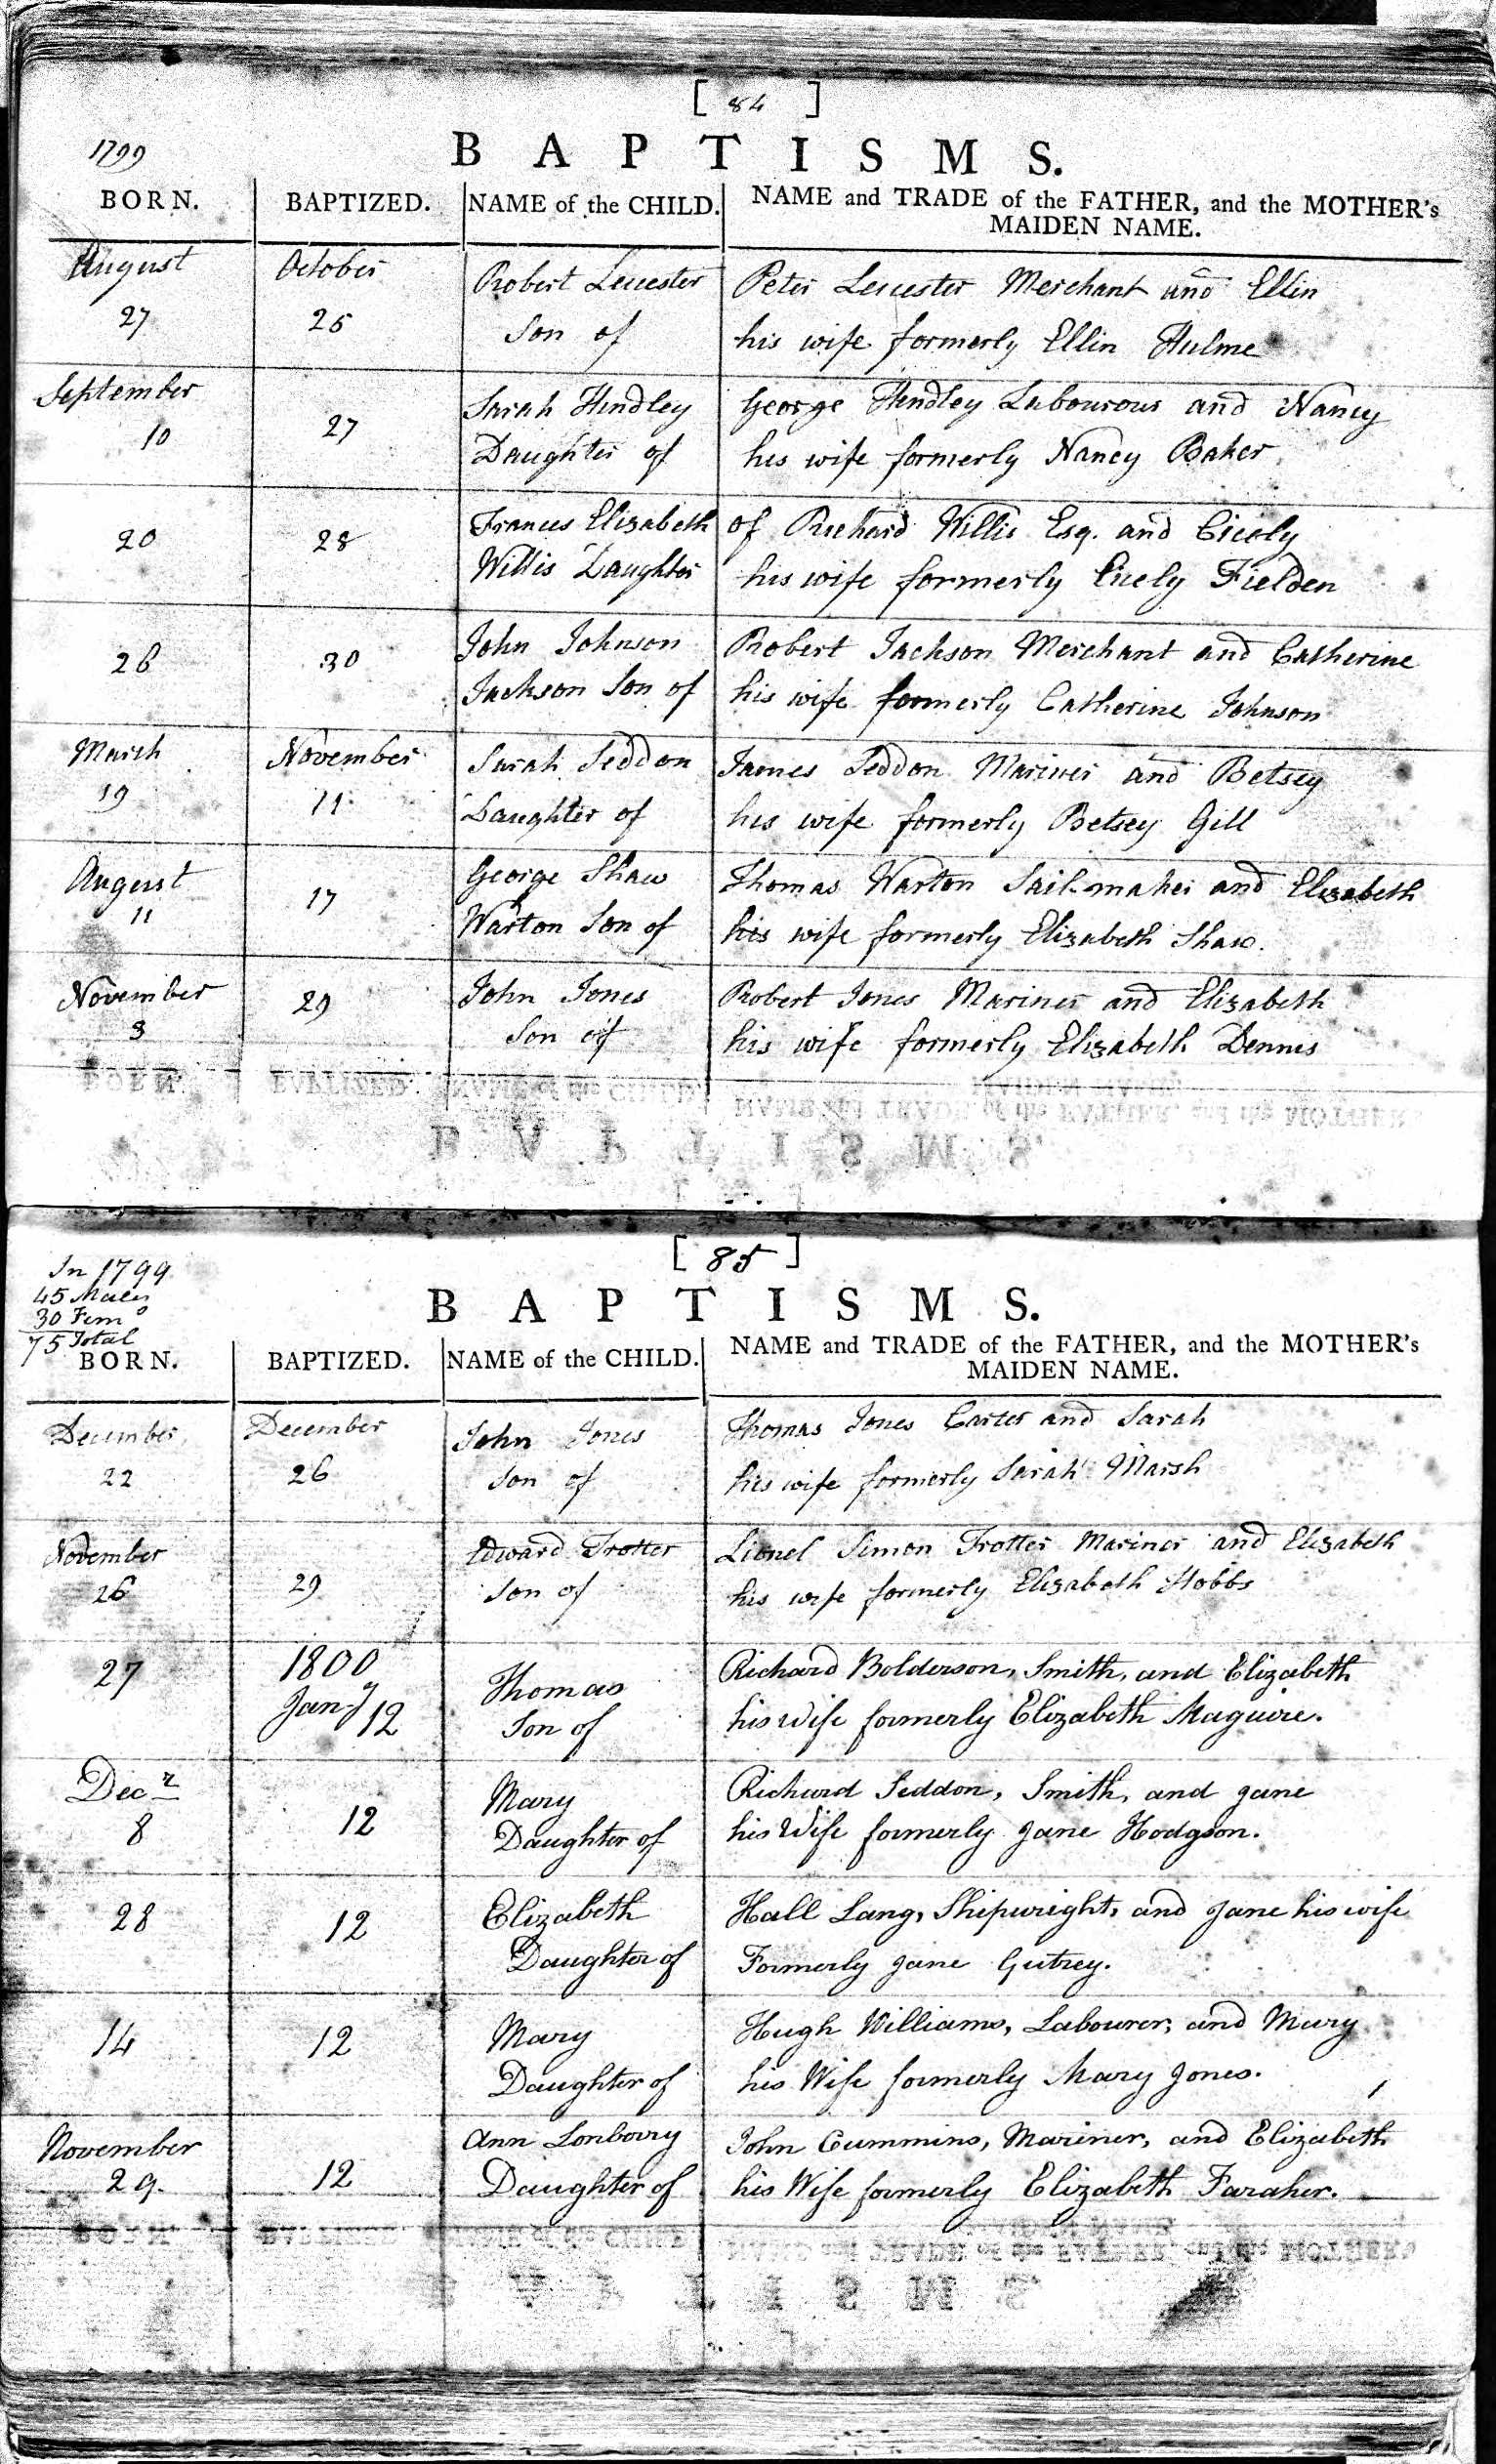 [ 84 ]
1799
BAPTISMS.
BORN. BAPTIZED. NAME of the CHILD. NAME and TRADE of the FATHER, and the MOTHER's
MAIDEN NAME.
August October Robert Leicester Peter Leicester Merchant and Ellin
27 25 Son of his wife formerly Ellin Hulme
September Sarah Hindley George Hindley Labourour and Nancy
10 27 Daughter of his wife formerly Nancy Baker
20 28 Frances Elizabeth of Richard Willis Esq. and Cicely
Willis Daughter his wife formerly Cicely Fielden
26 30 John Johnson Robert Jackson Merchant and Catherine
Jackson Son of his wife formerly Catherine Johnson
March November Sarah Seddon James Seddon Mariner and Betsey
19 11 Daughter of his wife formerly Betsey Gill
August 17 George Shaw Thomas Warton Sail-maker and Elizabeth
11 Warton Son of his wife formerly Elizabeth Shaw.
November 29 John Jones Robert Jones Mariner and Elizabeth
3 Son of his wife formerly Elizabeth Dennis
[ 85 ]
In 1799
45 Males
30 Fem
75 Total
BAPTISMS.
BORN. BAPTIZED. NAME of the CHILD. NAME and TRADE of the FATHER, and the MOTHER's
MAIDEN NAME.
December December John Jones Thomas Jones Carter and Sarah
22 26 Son of his wife formerly Sarah Marsh
November Edward Trotter Lionel Simon Trotter Mariner and Elizabeth
26 29 Son of his wife formerly Elizabeth Hobbs
27 1800 Thomas Richard Bolderson, Smith, and Elizabeth
Jany 12 Son of his Wife formerly Elizabeth Maguire.
Decr Mary Richard Seddon, Smith, and Jane
8 12 Daughter of his Wife formerly Jane Hodgson.
28 12 Elizabeth Hall Lang, Shipwright, and Jane his wife
Daughter of Formerly Jane Gutrey.
14 12 Mary Hugh Williams, Labourer, and Mary
Daughter of his Wife formerly Mary Jones.
November Ann Lonbovry John Cummins, Mariner, and Elizabeth
29. 12 Daughter of his Wife formerly Elizabeth Faraher.